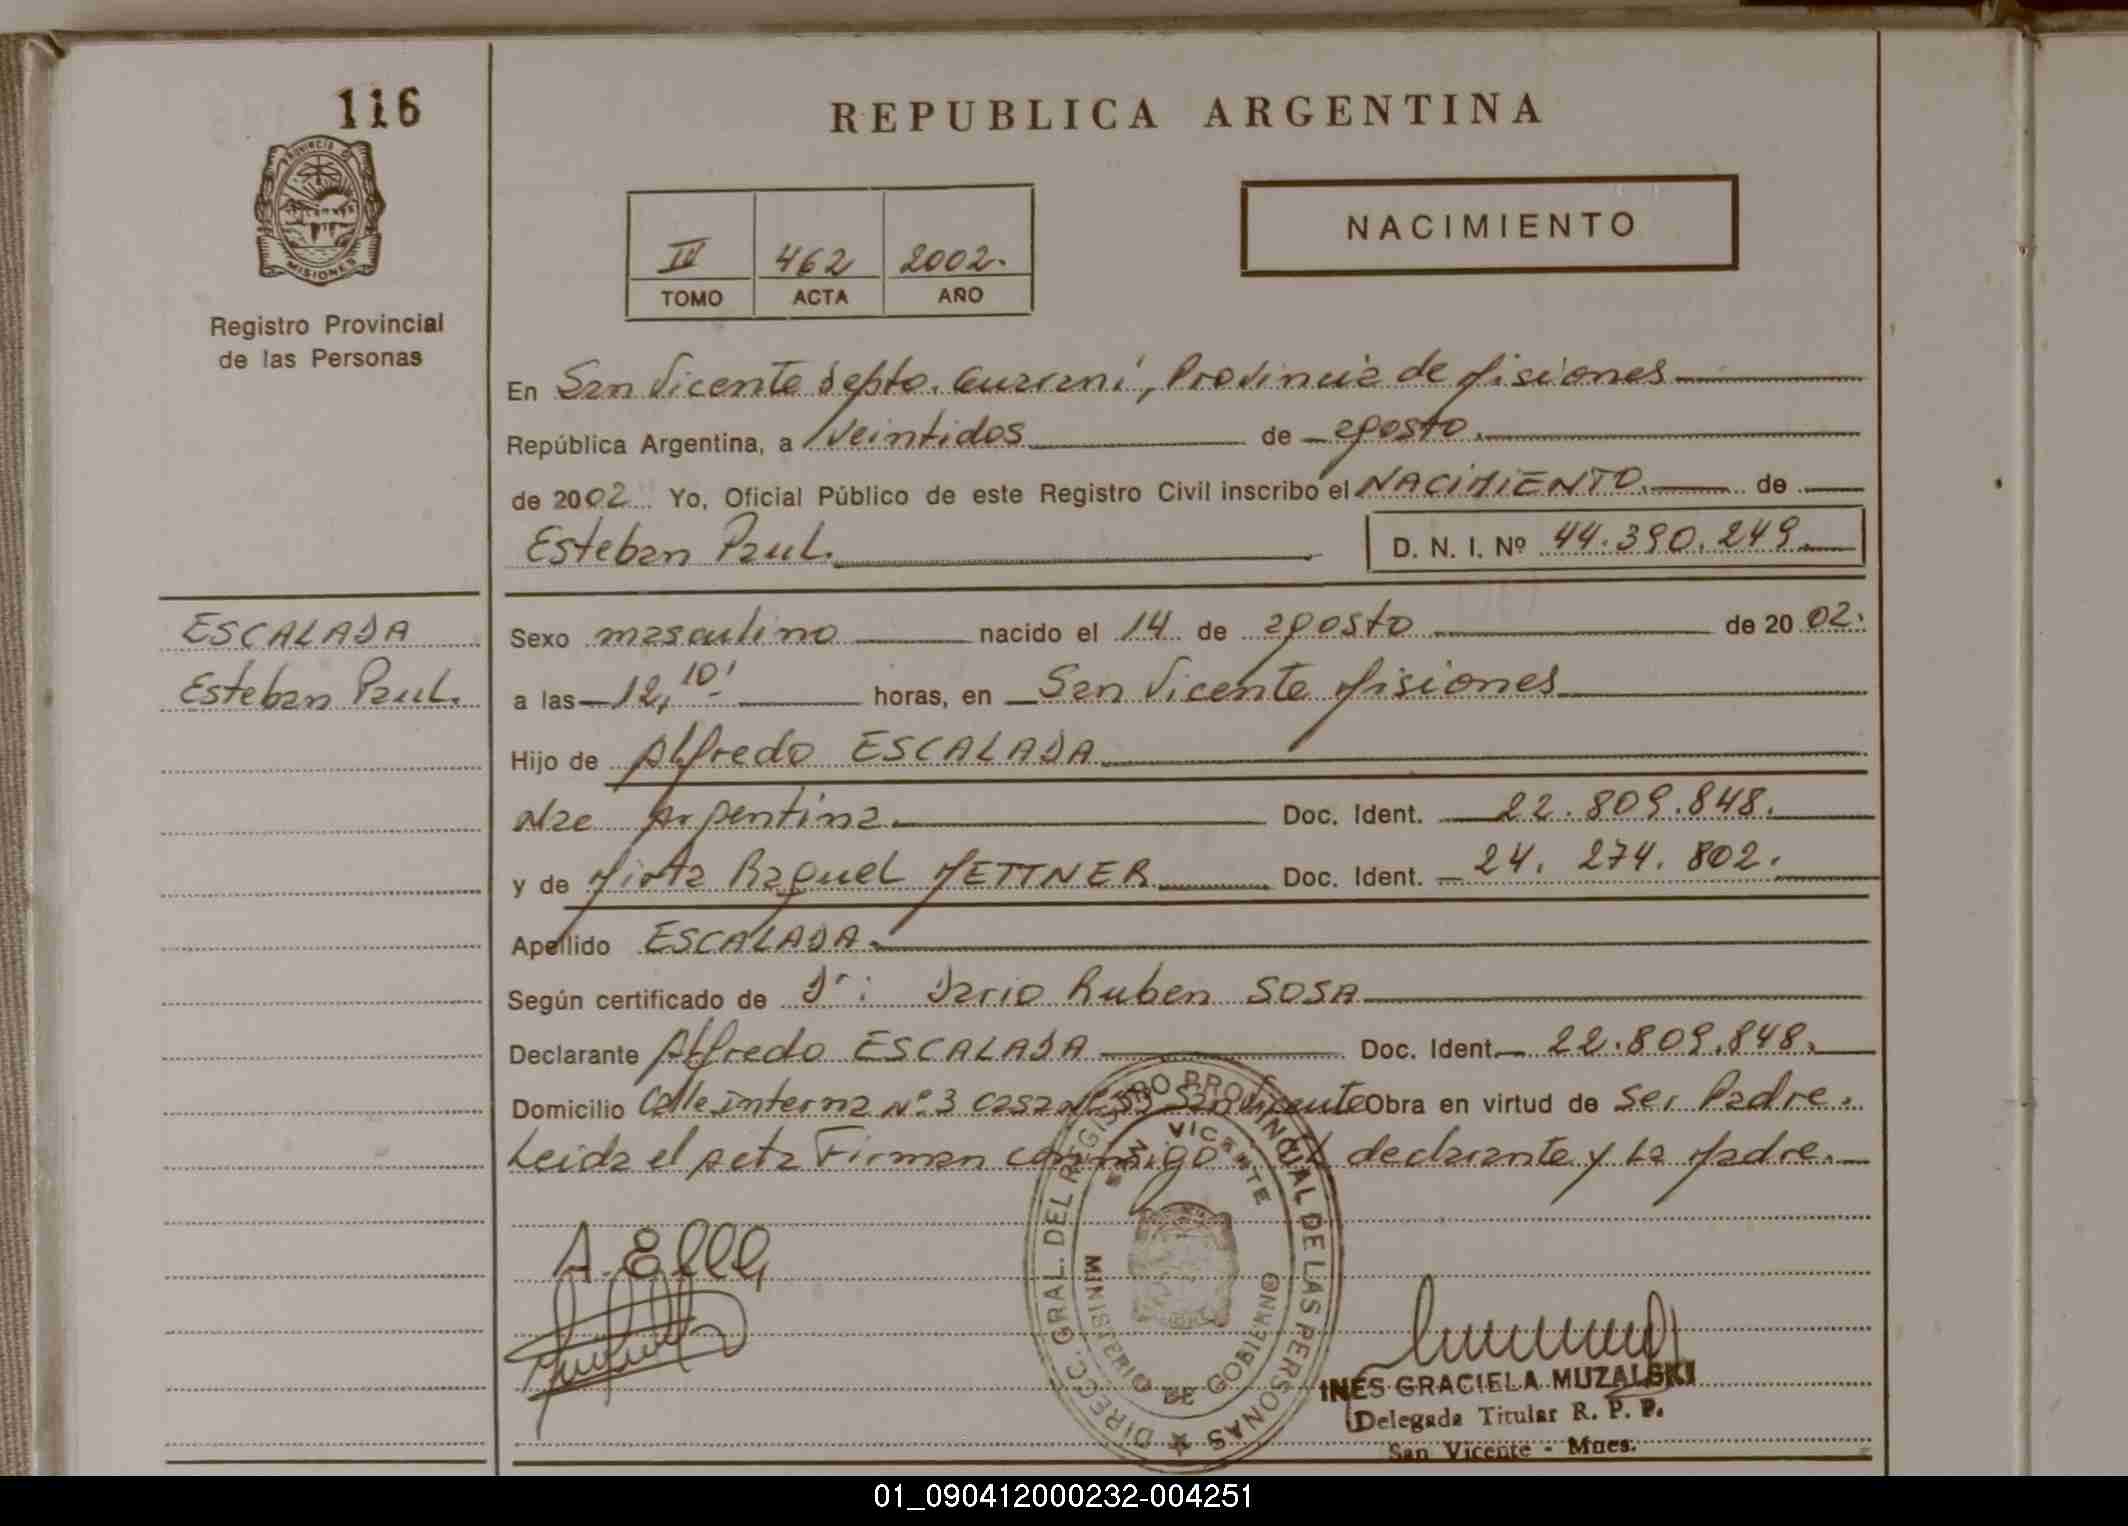 116
REPUBLICA ARGENTINA
PROVINCIA DE
MISIONES
NACIMIENTO
IV 462 2002.
TOMO ACTA AÑO
Registro Provincial
de las Personas
En San Vicente Depto. Guaraní, Provincia de Misiones
República Argentina, a veintidos de agosto.
de 2002 Yo, Oficial Público de este Registro Civil inscribo el NACIMIENTO. de
Esteban Paul. D. N. I. Nº 44.390.249.
ESCALADA
Esteban Paul.
Sexo masculino nacido el 14 de agosto de 2002.
a las 12,10' horas, en San Vicente Misiones
Hijo de Alfredo ESCALADA
Nac Argentina. Doc. Ident. 22.809.848.
y de Mirta Raquel METTNER Doc. Ident. 24. 274. 802.
Apellido ESCALADA.
Según certificado de Dr: Dario Ruben SOSA
Declarante Alfredo ESCALADA Doc. Ident. 22.809.848.
Domicilio Calle interna Nº 3 casa Nº San Vicente Obra en virtud de ser Padre.
Leida el acta Firman conmigo El declarante y La Madre.
DIRECC. GRAL. DEL REGISTRO PROVINCIAL DE LAS PERSONAS
SAN VICENTE
MINISTERIO DE GOBIERNO
INES GRACIELA MUZALSKI
Delegada Titular R. P. P.
San Vicente - Mnes.
01_090412000232-004251